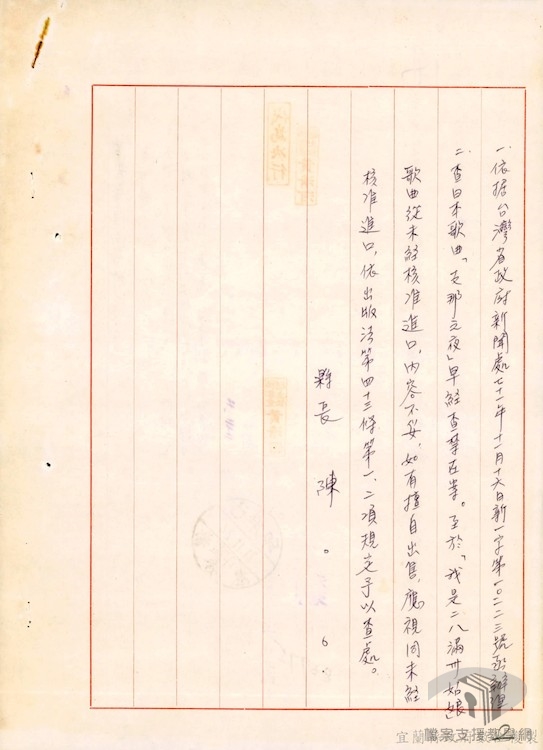 一、依據台灣省政府新聞處七十一年十一月十六日新一字第一〇二二三號函辦理
二、查日本歌曲「支那之夜」早經查禁在案。至於「我是二八滿州姑娘」
歌曲從未經核准進口,內容不妥,如有擅自出售,應視同未經
核准進口,依出版法第四十三條第一、二項規定予以查處。
縣長 陳 〇 〇
2
檔案支援教學網